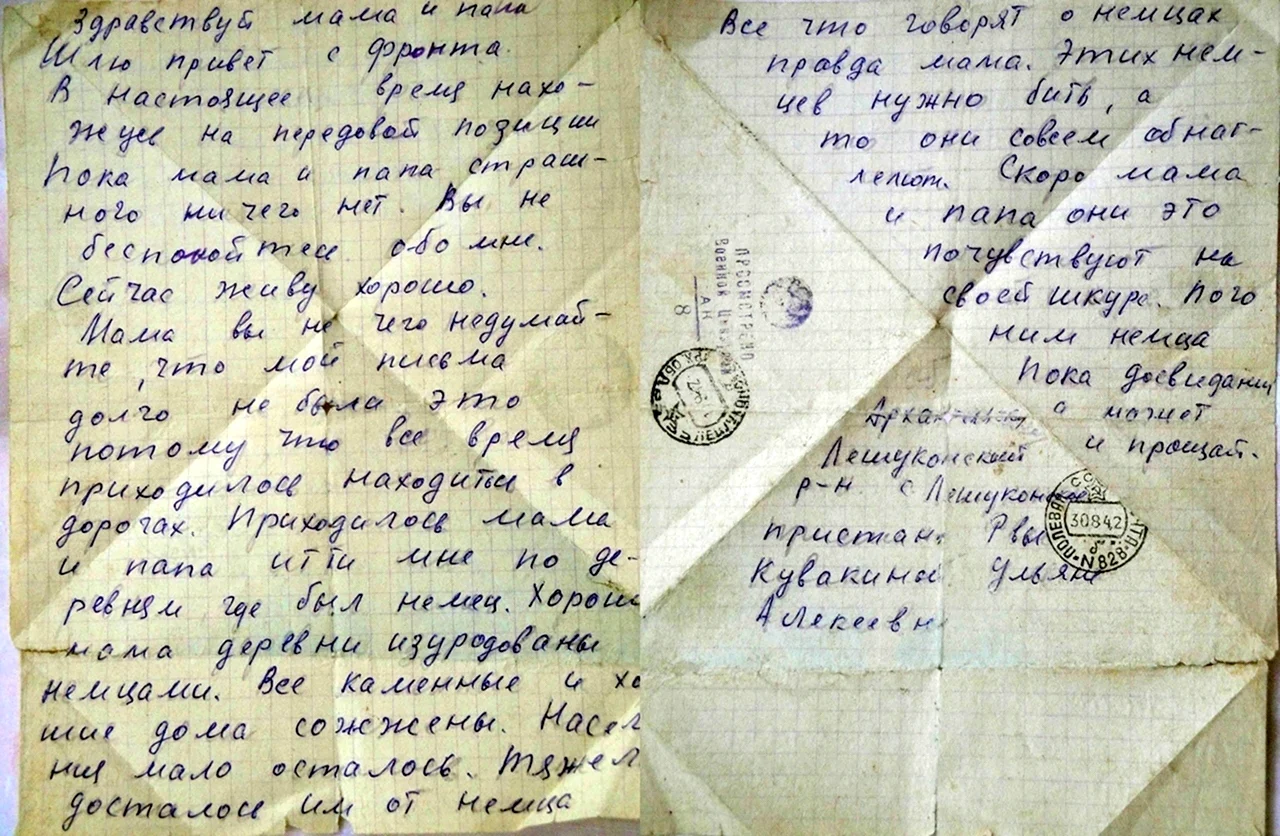 Здравствуй мама и папа
Шлю привет с фронта.
В настоящее время нахо-
жусь на передовой позиции
Пока мама и папа страш-
ного ничего нет. Вы не
беспокойтесь обо мне.
Сейчас живу хорошо.
Мама вы не чего недумай-
те, что мой письма
долго не были это
потому что все время
приходилось находиться в
дорогах. Приходилось мама
и папа итти мне по де-
ревням где был немец. Хорош
мама деревни изуродованы
немцами. Все каменные и хо
шие дома сожжены. Насел
ния мало осталось. Тяжел
досталось им от немца
Все что говорят о немцах
правда мама. Этих нем-
цев нужно бить, а
то они совсем обнаг-
леют. Скоро мама
и папа они это
почувствуют на
своей шкуре. Пого
ним немца
Пока досвидания
а может
и прощай.
Лешуконский
р-н с Лешуконское
пристан
Кувакиной Ульяне
Алексеевн
ПРОСМОТРЕНО
Военной
АН
8
ЛЕШУКОН
ПОЛЕВАЯ
30842
N828